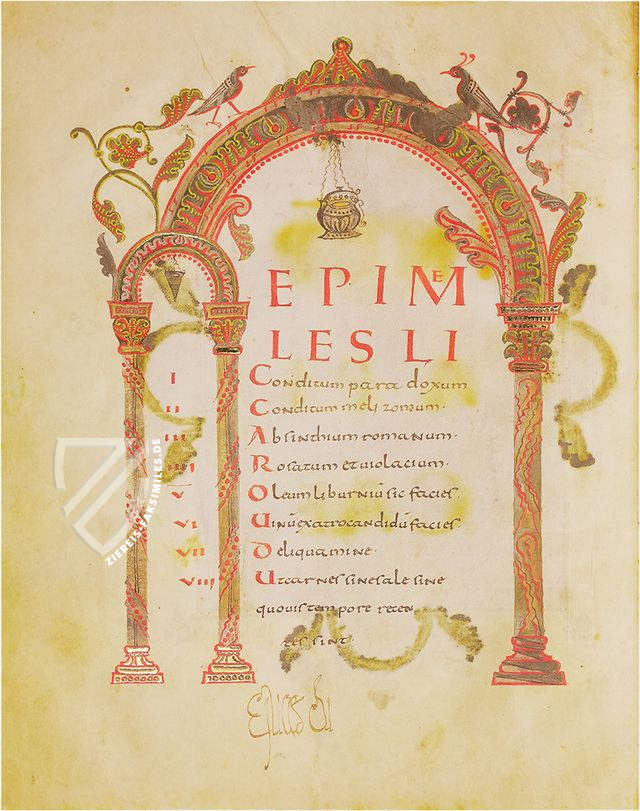 EPIME
LES LI
I Conditum paradoxum
II Conditum meli zomum.
III Absinthium romanum.
IIII Rosatum et uiolacium.
V Oleum liburnū sic facies.
VI Uinū ex atro candidū facies.
VII De liquamine.
VIII Ut carnes sine sale sine
quouis tempore recen
tes sint
ZIEREIS-FAKSIMILES.DE